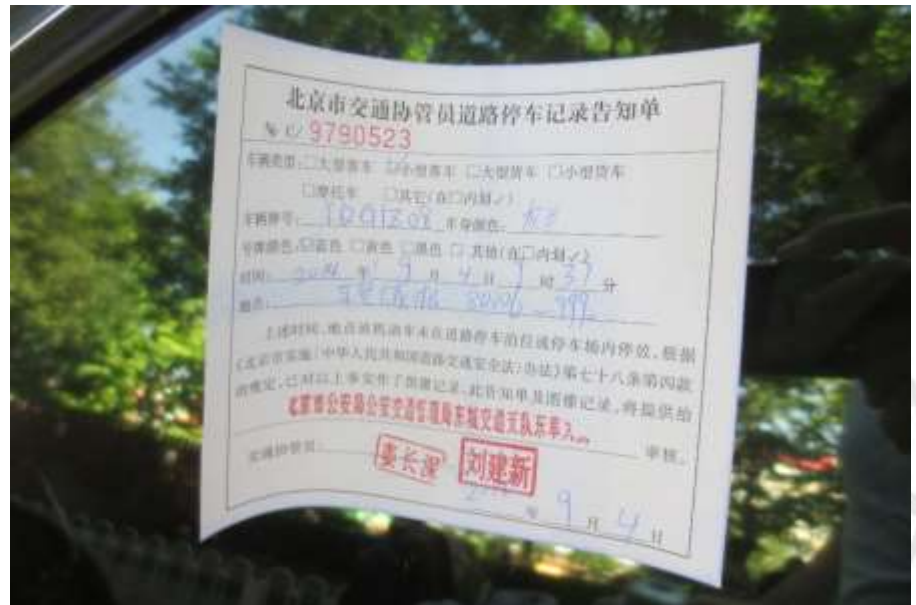 北京市交通协管员道路停车记录告知单
№ C/ 9790523
车辆类型:□大型客车 ☑小型客车 □大型货车 □小型货车
□摩托车 □其它(在□内划✓)
车辆牌号: 车身颜色:
号牌颜色:☑蓝色 □黄色 □黑色 □其他(在□内划✓)
时间:2014 年 9 月 4 日 9 时 37 分
地点:
上述时间、地点该机动车未在道路停车泊位或停车场内停放,根据
《北京市实施〈中华人民共和国道路交通安全法〉办法》第七十八条第四款
的规定,已对以上事实作了图像记录,此告知单及图像记录,将提供给
北京市公安局公安交通管理局东城交通支队东单 审核。
交通协管员: 刘建新
年 9 月 4 日